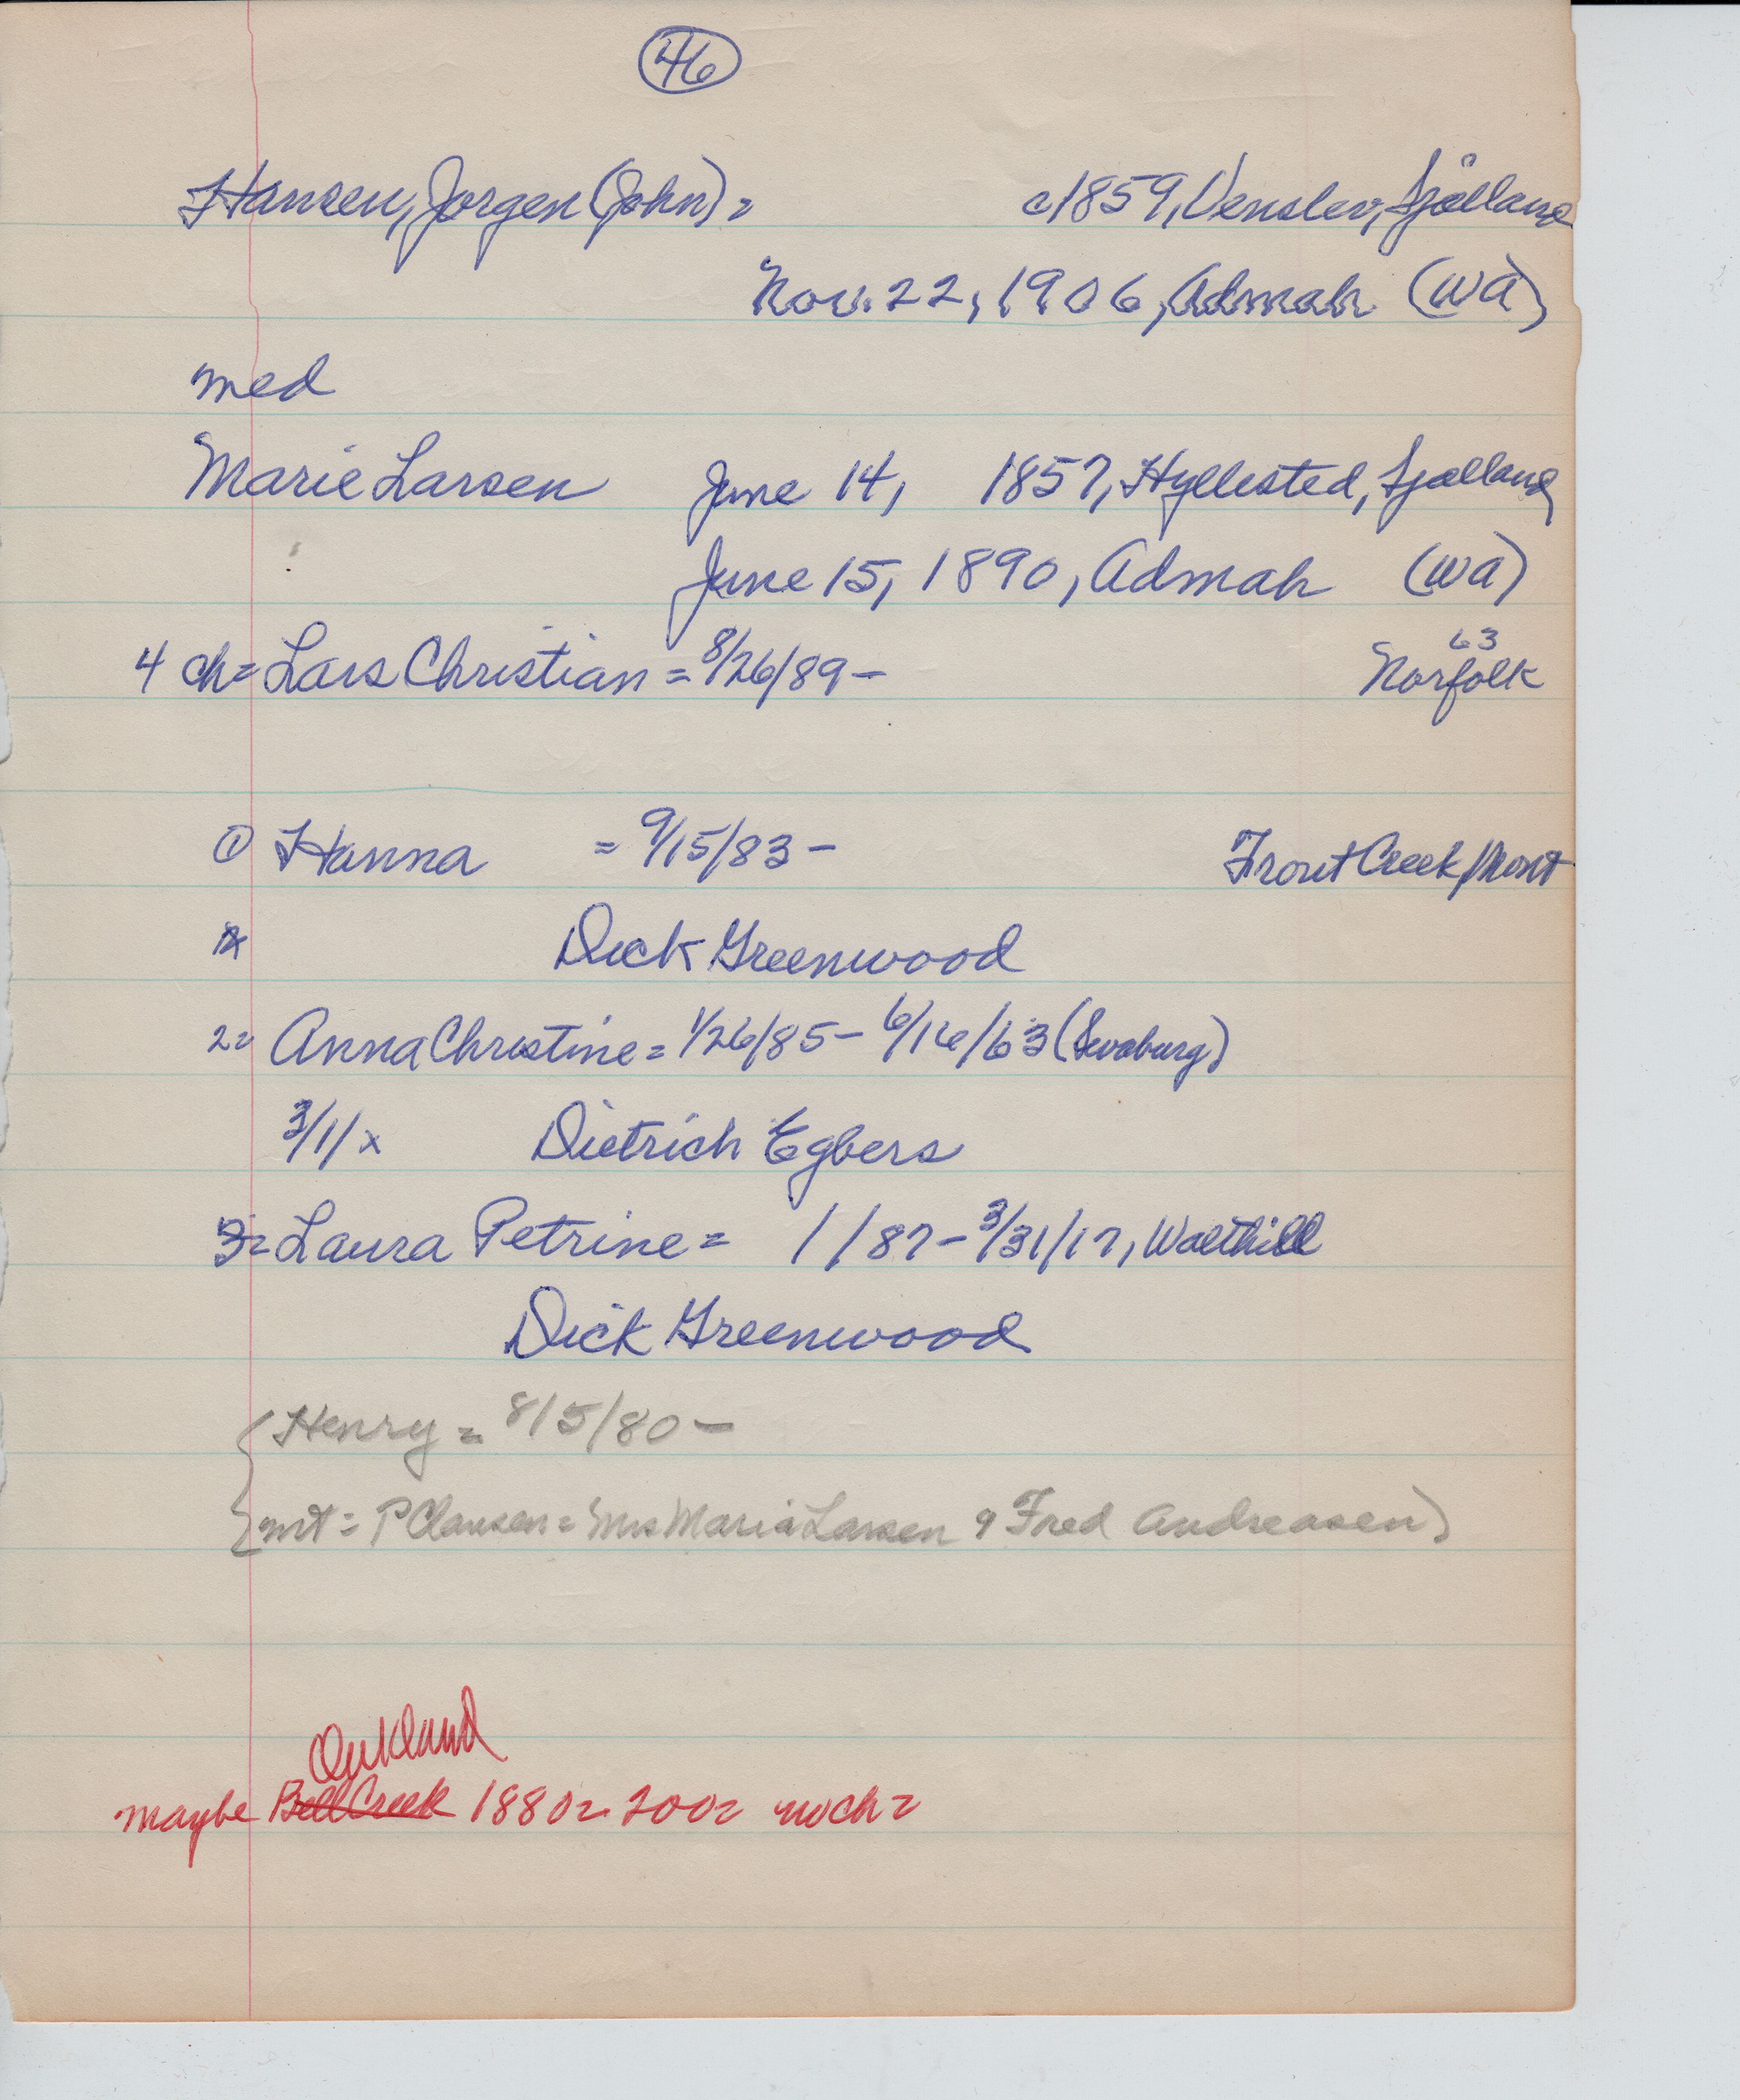 46
Hansen, Jorgen (John) = c1859, Venslev, Sjålland
Nov. 22, 1906, Admah (Wa)
med
Marie Larsen June 14, 1857, Hyllested, Sjælland
June 15, 1890, Admah (Wa)
63
4 ch = Lars Christian = 8/26/89 - Norfolk
① Hanna = 9/15/83 - Trout Creek, Mont
Dick Greenwood
2= Anna Christine = 1/26/85 - 6/16/63 (Swaburg)
3/1/ x Dietrich Egbers
3= Laura Petrine = 1/ /87 - 3/31/17, Walthill
Dick Greenwood
Henry = 8/5/80 -
wit = P Clausen = Mrs Maria Larsen & Fred Andreasen)
Oakland
maybe Bell Creek 1880= 200= noch =